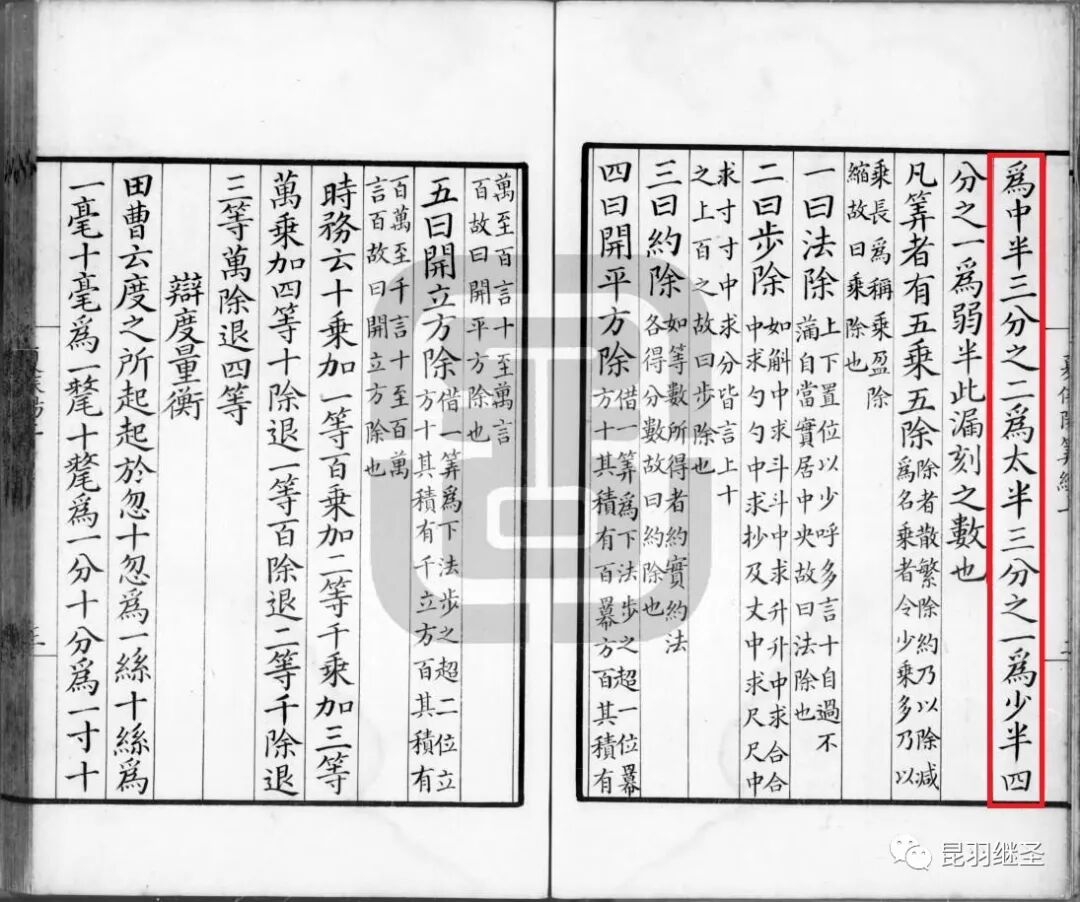 爲中半三分之二爲太半三分之一爲少半四
分之一爲弱半此漏刻之數也
凡筭者有五乘五除
除者散繁除約乃以除減
爲名乘者令少乘多乃以
乘長爲稱乘盈除
縮故曰乘除也
一曰法除
上下置位以少呼多言十自過不
蒲自當實居中央故曰法除也
二曰步除
如斛中求斗斗中求升升中求合合
中求勺勺中求抄及丈中求尺尺中
求寸寸中求分皆言上十
之上百之故曰步除也
三曰約除
如等數所得者約實約法
各得分數故曰約除也
四曰開平方除
借一筭爲下法步之超一位冪
方十其積有百冪方百其積有
萬至百言十至萬言
百故曰開平方除也
五曰開立方除
借一筭爲下法步之超二位立
方十其積有千立方百其積有
百萬至千言十至百萬
言百故曰開立方除也
時務云十乘加一等百乘加二等千乘加三等
萬乘加四等十除退一等百除退二等千除退
三等萬除退四等
辯度量衡
田曹云度之所起起於忽十忽爲一絲十絲爲
一毫十毫爲一氂十氂爲一分十分爲一寸十
昆羽继圣